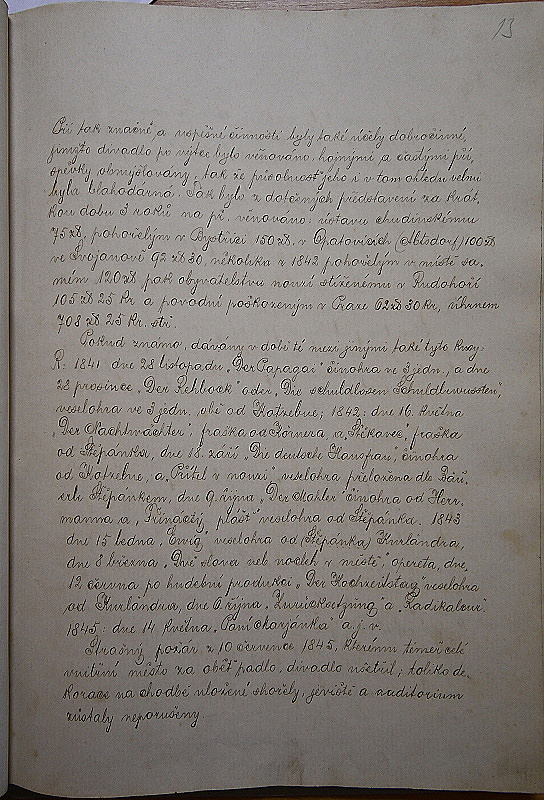 13
Při tak značné a úspěšné činnosti byly také účely dobročinné,
jimžto divadlo po výtce bylo věnováno, hojnými a častými pří,
spěvky obmýšlovány, tak že působnost jeho i v tom ohledu velmi
byla blahodárná. Tak bylo z dotčených představení za krát,
kou dobu 3 roků na př. věnováno: ústavu chudinskému
75 zl, pohořelým v Bystřici 150 zl, v Opatovicích (Abtsdorf) 100 zl
ve Svojanově 92 zl 30, několika r. 1842 pohořelým v místě sa,
mém 120 zl pak obyvatelstvu nouzí stíženému v Rudohoří
105 zl 25 kr a povodní poškozeným v Praze 62 zl 30 kr, úhrnem
708 zl 25 kr. stř.
Pokud známo, dávány v době té mezi jinými také tyto kusy:
R. 1841 dne 28 listopadu „Der Papagai" činohra ve 3 jedn., a dne
28 prosince „Der Rehbock" oder „Die schuldlosen Schuldbewussten",
veselohra ve 3 jedn. obě od Kotzebue; 1842: dne 16. května
„Der Nachtwächter", fraška od Körnera a „Štěkavec", fraška
od Štěpánka, dne 18. září „Die deutsche Hausfrau", činohra
od Kotzebue, a „Přítel v nouzi" veselohra přeložená dle Bäu,
erle Štěpánkem, dne 9. října „Der Mahler" činohra od Herr,
manna a „Třináctý plášť" veselohra od Štěpánka. 1843
dne 15 ledna veselohra od (Štěpánka) Kurländra,
dne 8 března „Dvě slova neb nocleh v městě", opereta, dne
12 června po hudební produkci „Der Hochzeitstag" veselohra
od Kurländra, dne 6. října „Zurücksetzung" a „Radikalcur".
1845: dne 14 května „Paní Marjánka" a. j. v.
Strašný požár z 10 července 1845, kterému téměř celé
vnitřní město za oběť padlo, divadlo ušetřil; toliko de,
korace na chodbě uložené shořely, jeviště a auditorium
zůstaly neporušeny.